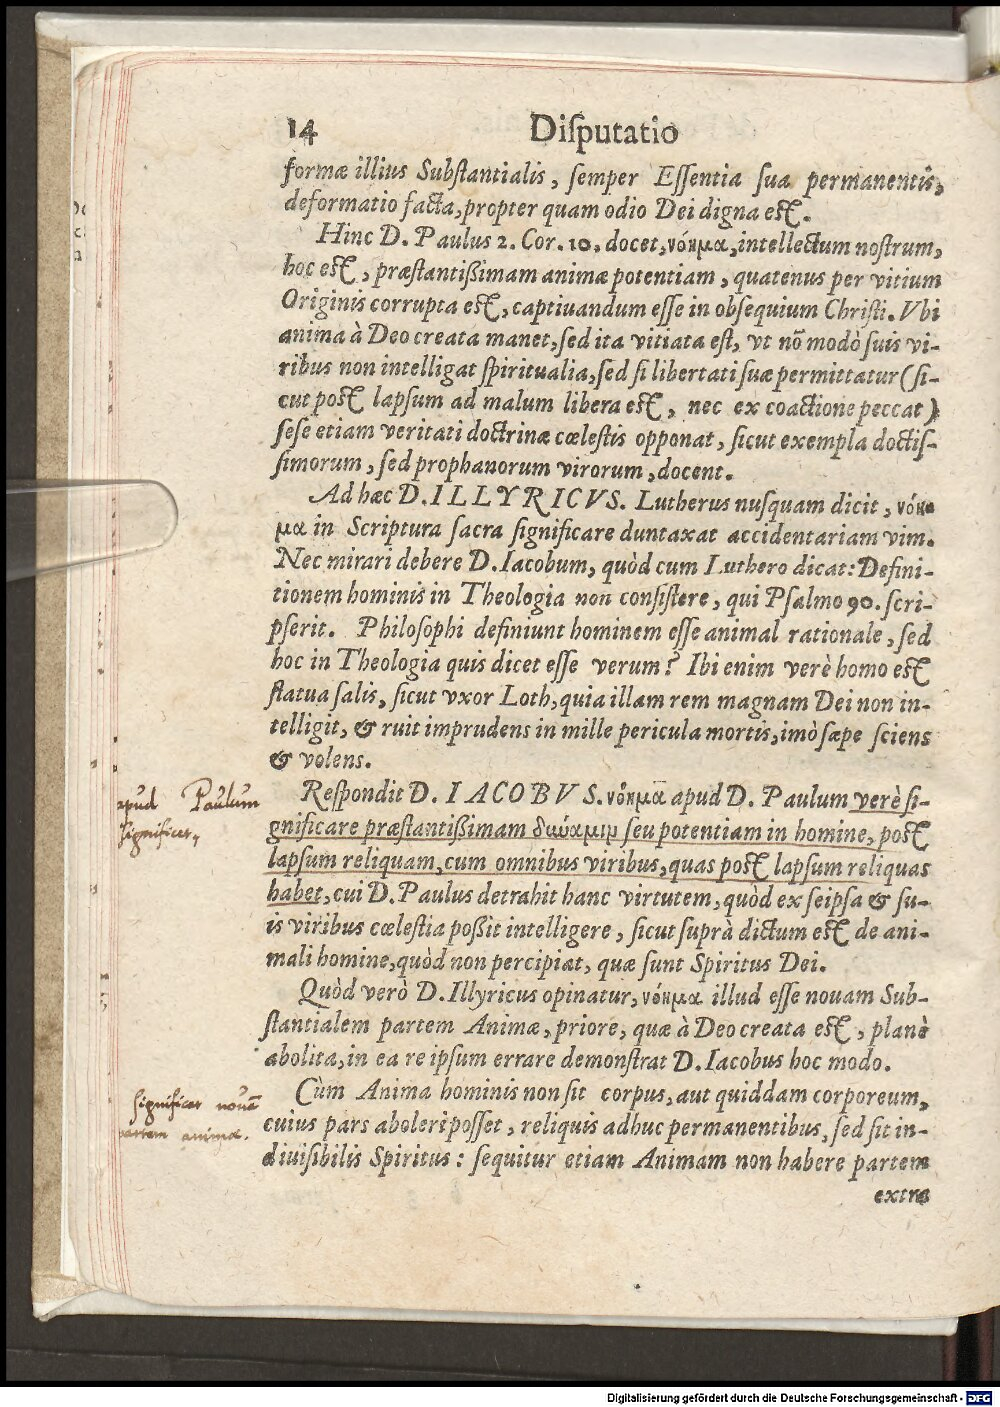 14 Diſputatio
formæ illius Subſtantialis, ſemper Eſſentia ſua permanentis,
deformatio facta, propter quam odio Dei digna eſt.
Hinc D. Paulus 2. Cor. 10. docet, νόημα, intellectum noſtrum,
hoc eſt, præſtantißimam animæ potentiam, quatenus per vitium
Originis corrupta eſt, captiuandum eſſe in obſequium Chriſti. Vbi
anima à Deo creata manet, ſed ita vitiata eſt, vt nõ modò ſuis vi-
ribus non intelligat ſpiritualia, ſed ſi libertati ſuæ permittatur (ſi-
cut poſt lapſum ad malum libera eſt, nec ex coactione peccat)
ſeſe etiam veritati doctrinæ cœleſtis opponat, ſicut exempla doctiſ-
ſimorum, ſed prophanorum virorum, docent.
Ad hæc D. ILLYRICVS. Lutherus nuſquam dicit, νόη-
μα in Scriptura ſacra ſignificare duntaxat accidentariam vim.
Nec mirari debere D. Iacobum, quòd cum Luthero dicat: Defini-
tionem hominis in Theologia non conſiſtere, qui Pſalmo 90. ſcri-
pſerit. Philoſophi definiunt hominem eſſe animal rationale, ſed
hoc in Theologia quis dicet eſſe verum? Ibi enim verè homo eſt
ſtatua ſalis, ſicut vxor Loth, quia illam rem magnam Dei non in-
telligit, & ruit imprudens in mille pericula mortis, imò ſæpe ſciens
& volens.
Reſpondit D. IACOBVS. νόημα apud D. Paulum verè ſi-
gnificare præſtantißimam δυνάμιμ ſeu potentiam in homine, poſt
lapſum reliquam, cum omnibus viribus, quas poſt lapſum reliquas
habet, cui D. Paulus detrahit hanc virtutem, quòd ex ſeipſa & ſu-
is viribus cœleſtia poßit intelligere, ſicut ſuprà dictum eſt de ani-
mali homine, quòd non percipiat, quæ ſunt Spiritus Dei.
Quòd verò D. Illyricus opinatur, νόημα illud eſſe nouam Sub-
ſtantialem partem Animæ, priore, quæ à Deo creata eſt, planè
abolita, in ea re ipſum errare demonſtrat D. Iacobus hoc modo.
Cùm Anima hominis non ſit corpus, aut quiddam corporeum,
cuius pars aboleri poſſet, reliquis adhuc permanentibus, ſed ſit in-
diuiſibilis Spiritus: ſequitur etiam Animam non habere partem
extra
apud Paulum
ſignificet
ſignificet nouã
partem animæ.
Digitalisierung gefördert durch die Deutsche Forschungsgemeinschaft - DFG